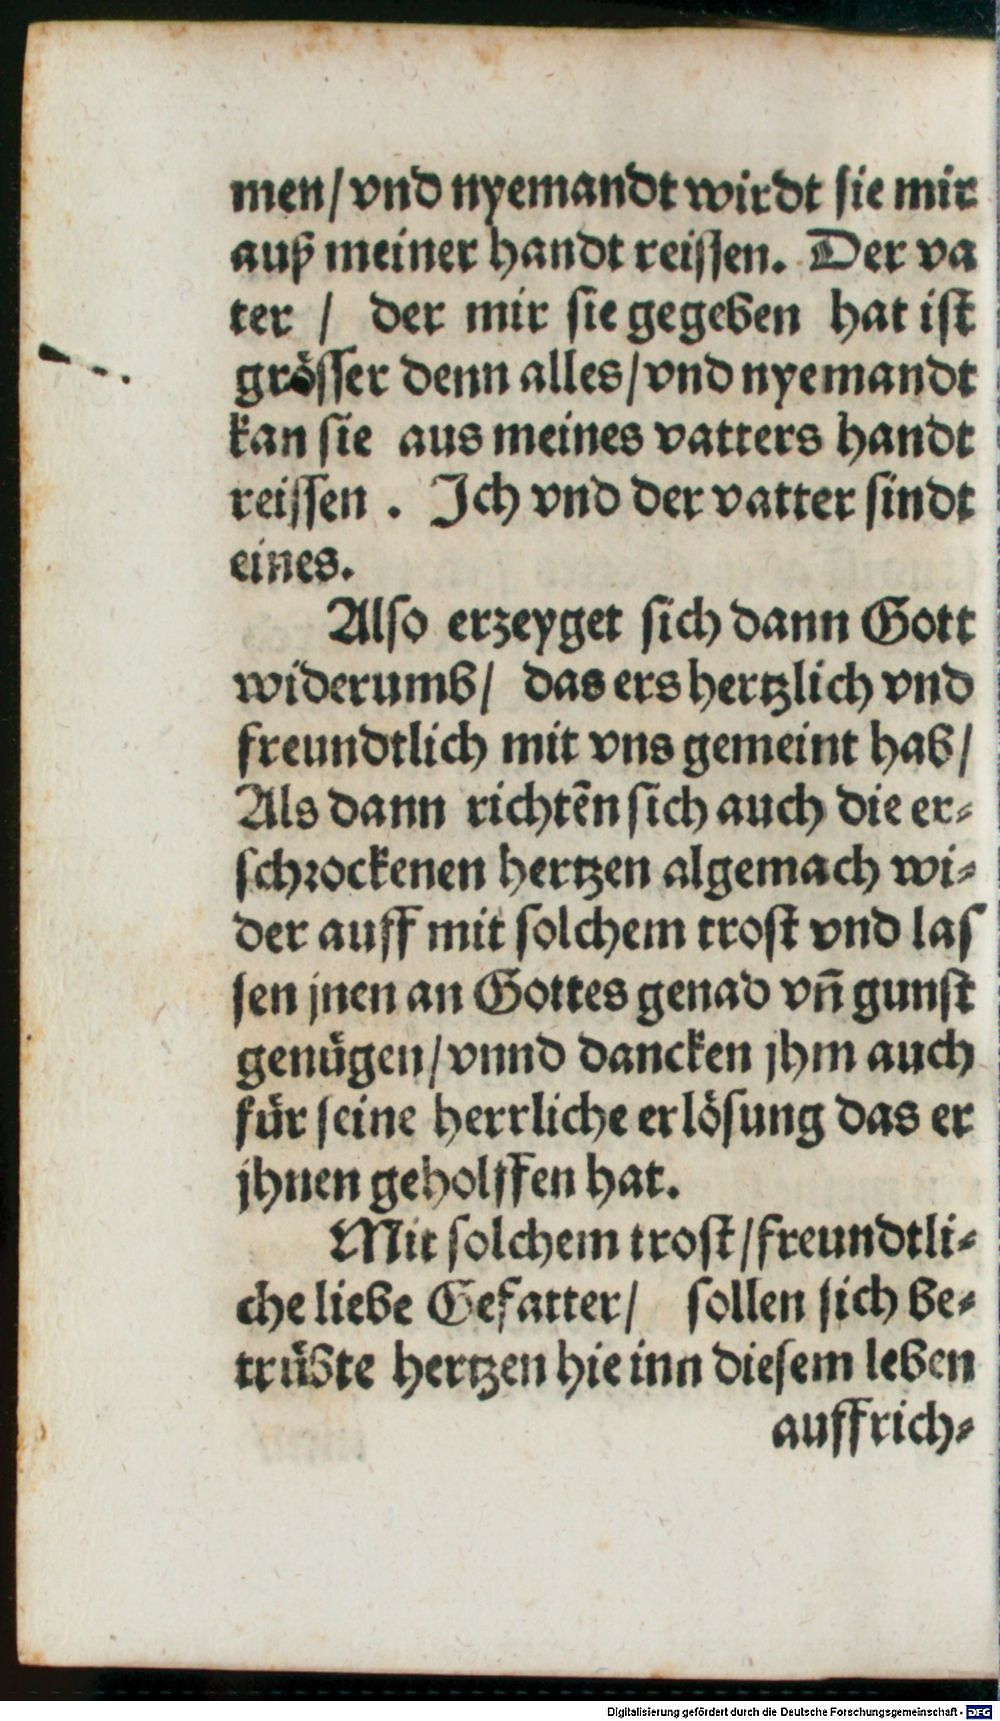 men/vnd nyemandt wirdt sie mir
auß meiner handt reissen. Der va
ter / der mir sie gegeben hat ist
grösser denn alles/vnd nyemandt
kan sie aus meines vatters handt
reissen . Ich vnd der vatter sindt
eines.
Also erzeyget sich dann Gott
widerumb/ das ers hertzlich vnd
freundtlich mit vns gemeint hab/
Als dann richtẽn sich auch die er-
schrockenen hertzen algemach wi-
der auff mit solchem trost vnd las
sen jnen an Gottes genad vñ gunst
genügen/vnnd dancken jhm auch
für seine herrliche erlösung das er
jhnen geholffen hat.
Mit solchem trost/freundtli-
che liebe Gefatter/ sollen sich be-
trübte hertzen hie inn diesem leben
auffrich-
Digitalisierung gefördert durch die Deutsche Forschungsgemeinschaft - DFG